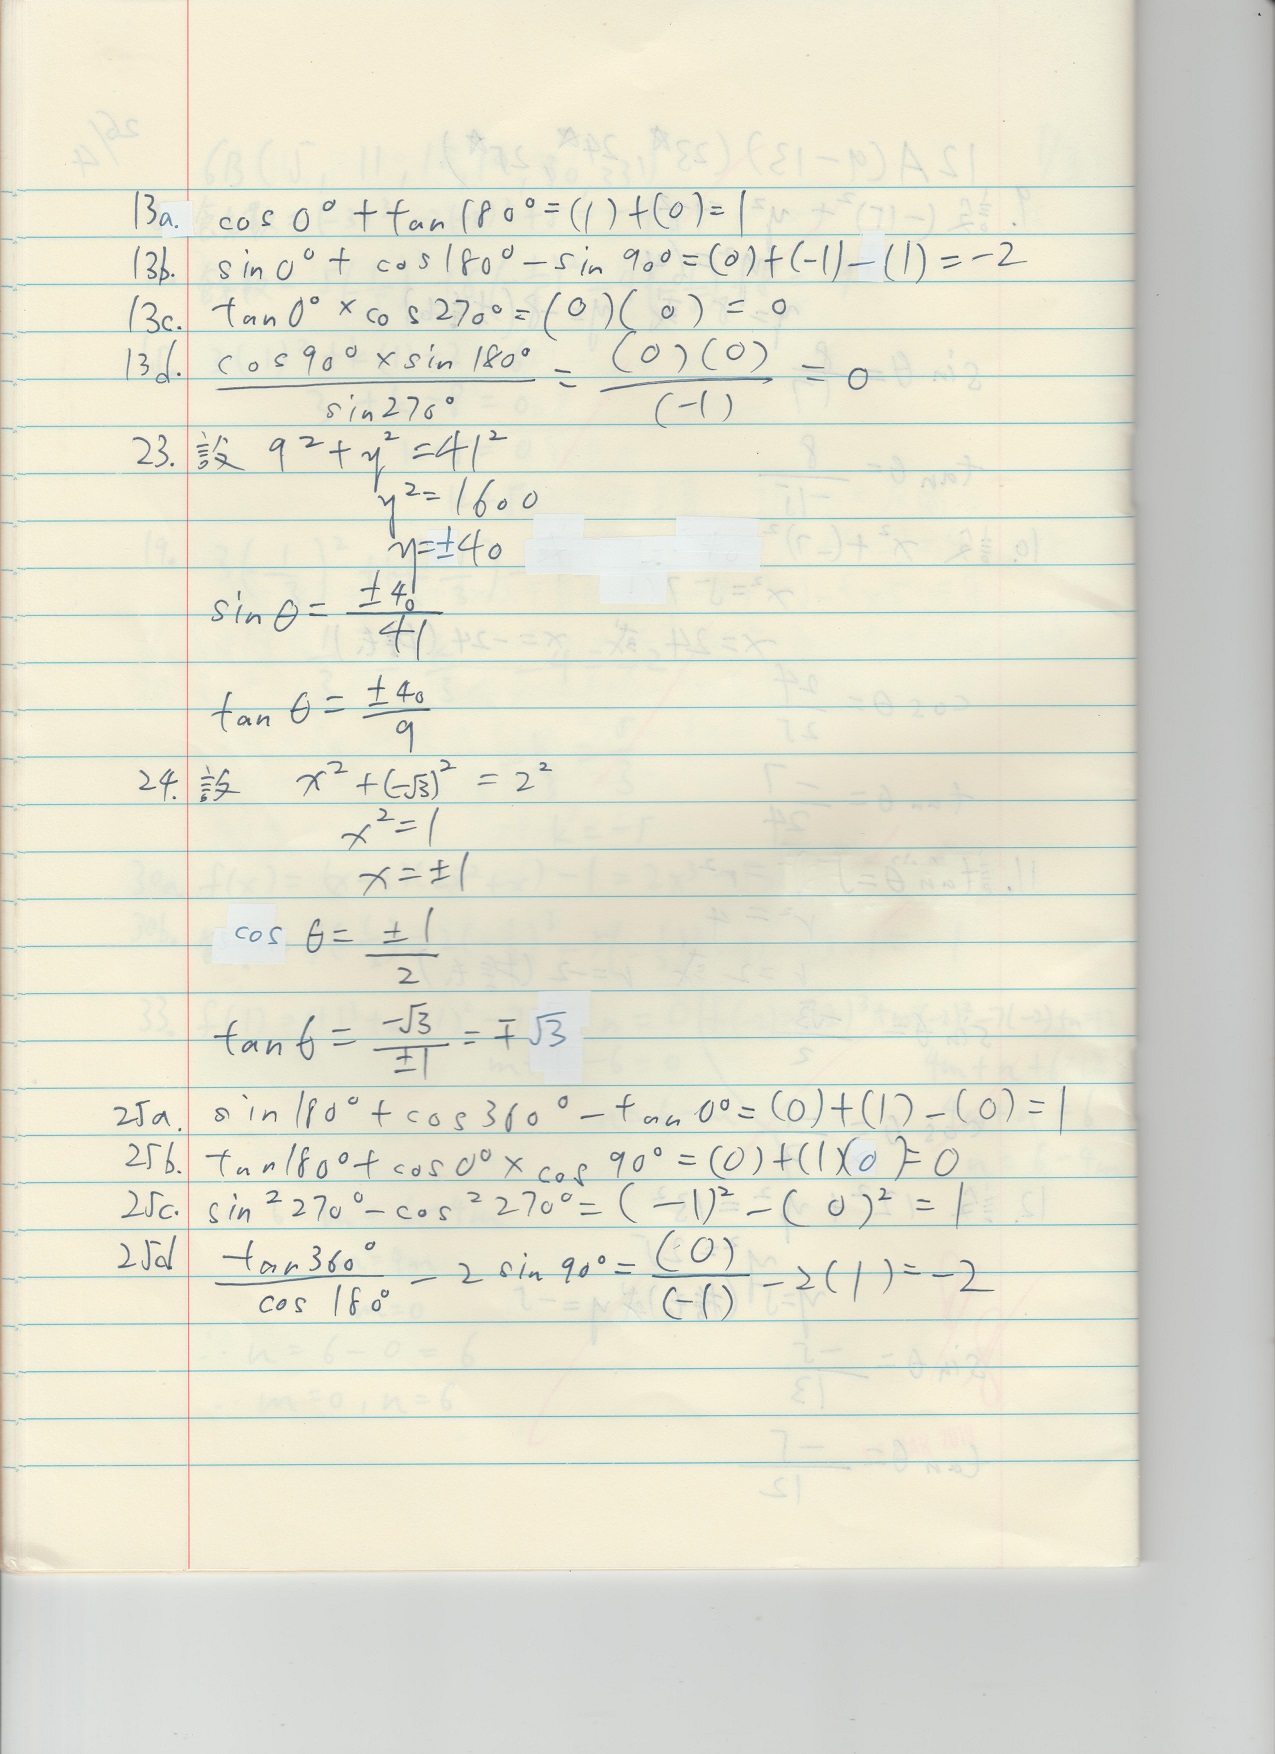 13a. cos 0° + tan 180° = (1) + (0) = 1
13b. sin 0° + cos 180° - sin 90° = (0) + (-1) - (1) = -2
13c. tan 0° × cos 270° = (0)(0) = 0
13d. (cos 90° × sin 180°)/(sin 270°) = ((0)(0))/(-1) = 0
23. 設 9² + y² = 41²
y² = 1600
y = ±40
sin θ = ±40/41
tan θ = ±40/9
24. 設 x² + (-√3)² = 2²
x² = 1
x = ±1
cos θ = ±1/2
tan θ = -√3/±1 = ∓√3
25a. sin 180° + cos 360° - tan 0° = (0) + (1) - (0) = 1
25b. tan 180° + cos 0° × cos 90° = (0) + (1)(0) = 0
25c. sin² 270° - cos² 270° = (-1)² - (0)² = 1
25d tan 360°/cos 180° - 2 sin 90° = (0)/(-1) - 2(1) = -2